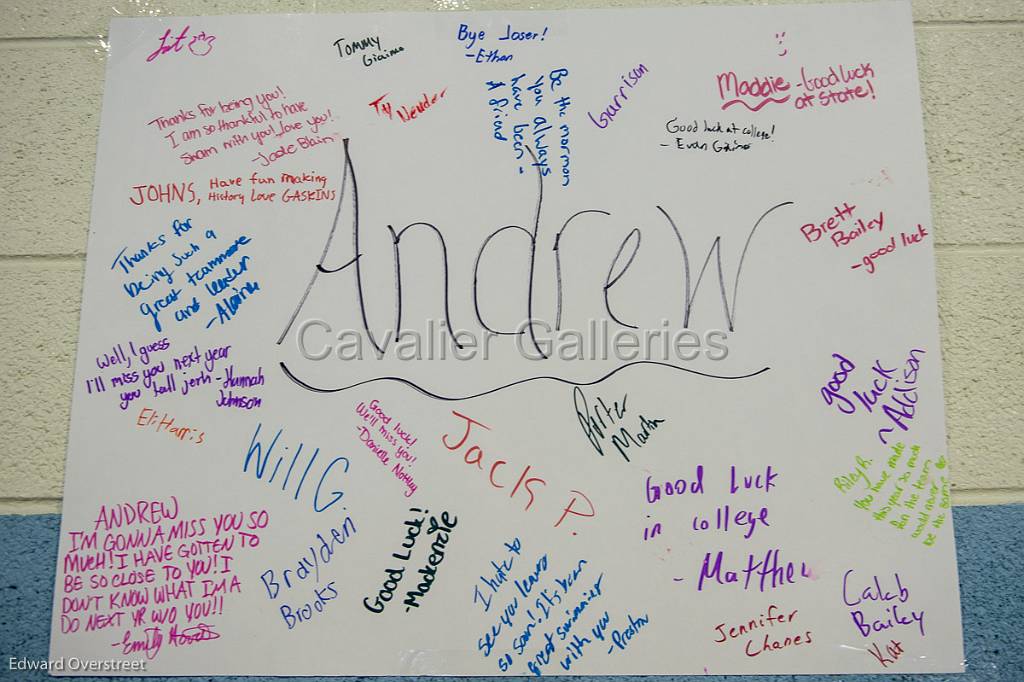 Tommy
Giaimo
Bye loser!
-Ethan
Be the mormon
you always
have been -
A friend
Garrison
Maddie - Good luck
at State!
Thanks for being you!
I am so thankful to have
swam with you! Love you!
Ty Neuder
Good luck at college!
- Evan Giaimo
JOHNS, Have fun making
History Love GASKINS
Andrew
Brett
Bailey
- good luck
Thanks for
being such a
great teammate
and leader
- Alaina
Cavalier Galleries
Well, I guess
I'll miss you next year
you tall jerk - Hannah
Johnson
Eli Harris
Will G
Good luck!
We'll miss you!
-Danielle Nottley
Jack P.
Porter
Martin
good
luck
~Addison
Riley R.
You have made
this year so much
fun the team
would never
be the same
Good Luck
in college
- Matthew
ANDREW
I'M GONNA MISS YOU SO
MUCH! I HAVE GOTTEN TO
BE SO CLOSE TO YOU! I
DON'T KNOW WHAT I'M A
DO NEXT YR W/O YOU!!
-Emily
Brayden
Brooks
Good Luck!
-Mackenzie
I hate to
see you leave
so soon! It's been
great swimmin
with you
- Preston
Jennifer
Chanes
Caleb
Bailey
Kat
Edward Overstreet